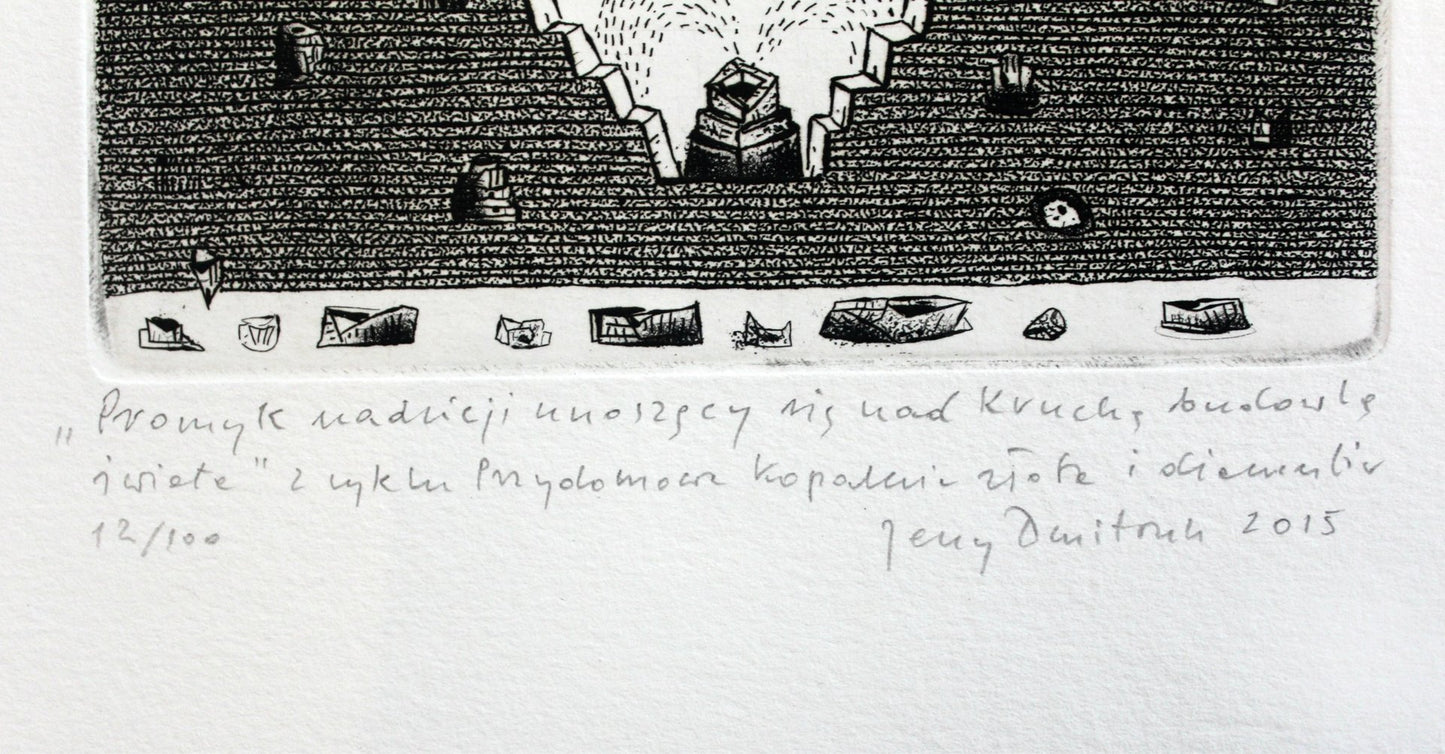 „Promyk nadzieji unoszący się nad Kruchą budowlą
świata" z cyklu Przydomowa kopalnia złota i diamentów
12/100
Jerzy Dmitruk 2015